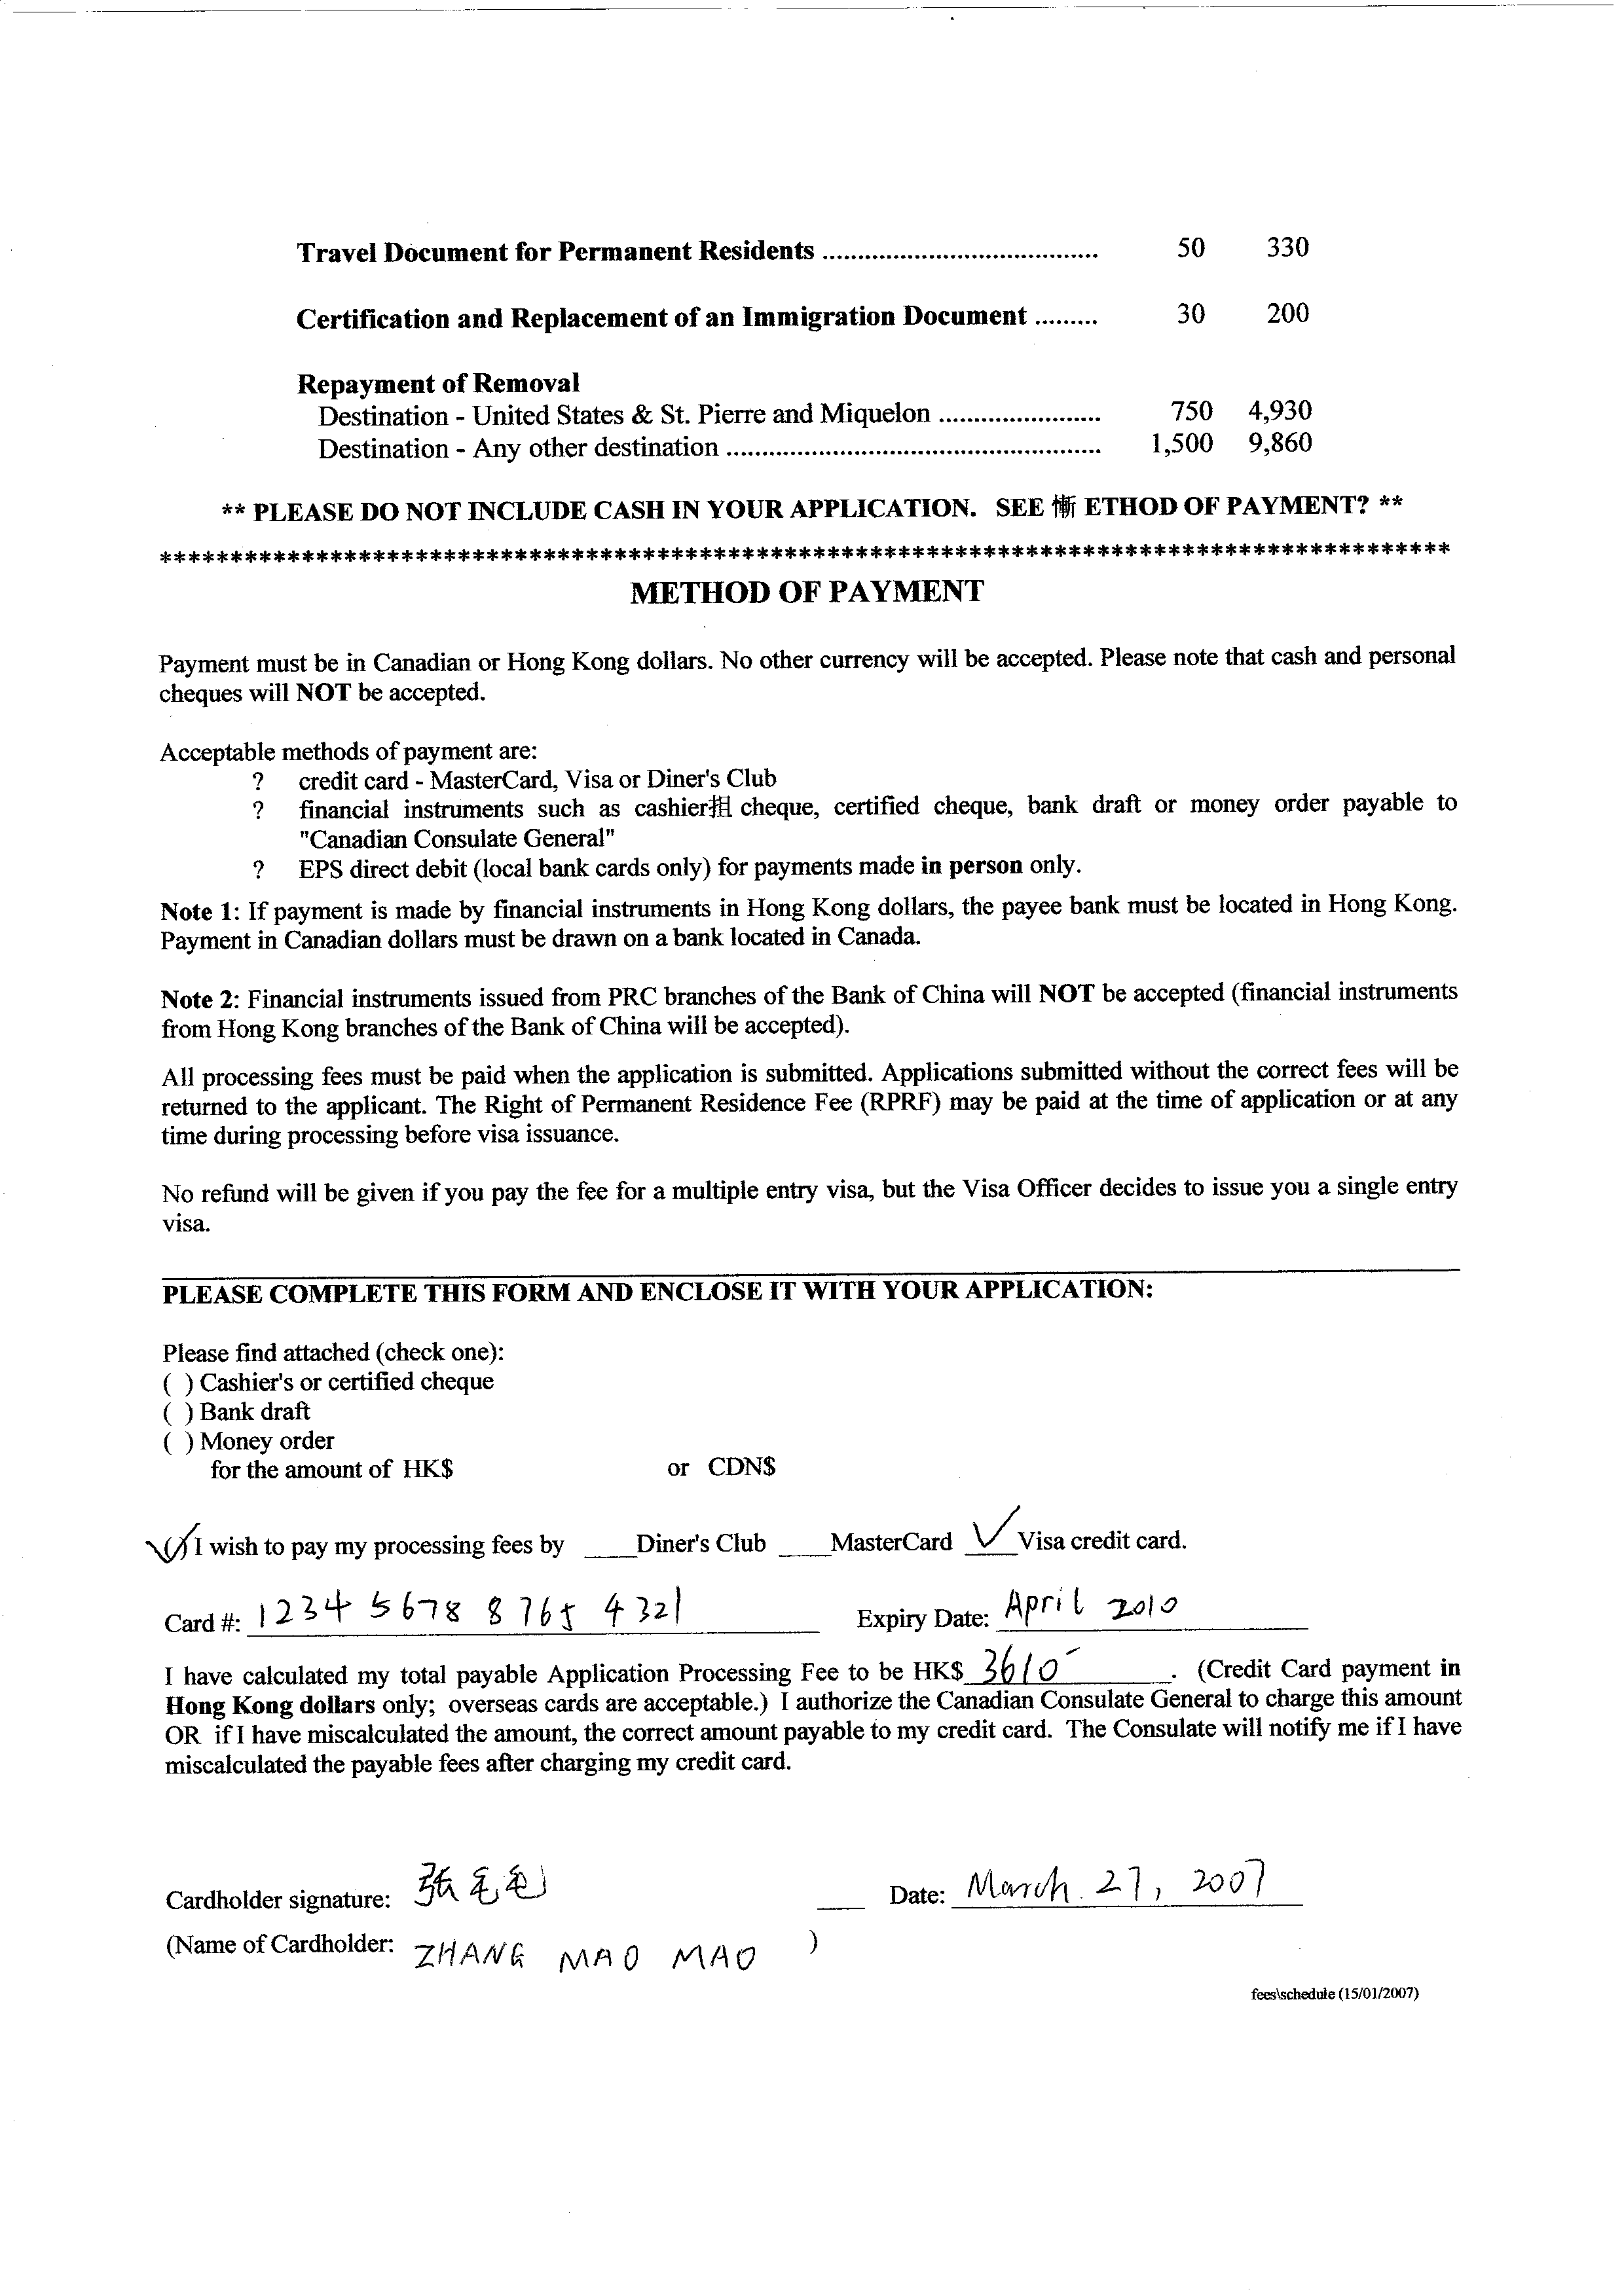 Travel Document for Permanent Residents ....................................... 50 330
Certification and Replacement of an Immigration Document ......... 30 200
Repayment of Removal
Destination - United States & St. Pierre and Miquelon ....................... 750 4,930
Destination - Any other destination ..................................................... 1,500 9,860
** PLEASE DO NOT INCLUDE CASH IN YOUR APPLICATION. SEE 慚 ETHOD OF PAYMENT? **
*******************************************************************************************
METHOD OF PAYMENT
Payment must be in Canadian or Hong Kong dollars. No other currency will be accepted. Please note that cash and personal
cheques will NOT be accepted.
Acceptable methods of payment are:
? credit card - MasterCard, Visa or Diner's Club
? financial instruments such as cashier抯 cheque, certified cheque, bank draft or money order payable to
"Canadian Consulate General"
? EPS direct debit (local bank cards only) for payments made in person only.
Note 1: If payment is made by financial instruments in Hong Kong dollars, the payee bank must be located in Hong Kong.
Payment in Canadian dollars must be drawn on a bank located in Canada.
Note 2: Financial instruments issued from PRC branches of the Bank of China will NOT be accepted (financial instruments
from Hong Kong branches of the Bank of China will be accepted).
All processing fees must be paid when the application is submitted. Applications submitted without the correct fees will be
returned to the applicant. The Right of Permanent Residence Fee (RPRF) may be paid at the time of application or at any
time during processing before visa issuance.
No refund will be given if you pay the fee for a multiple entry visa, but the Visa Officer decides to issue you a single entry
visa.
PLEASE COMPLETE THIS FORM AND ENCLOSE IT WITH YOUR APPLICATION:
Please find attached (check one):
( ) Cashier's or certified cheque
( ) Bank draft
( ) Money order
for the amount of HK$ or CDN$
(✓) I wish to pay my processing fees by ____Diner's Club ____MasterCard ✓ Visa credit card.
Card #: 1234 5678 8765 4321 Expiry Date: April 2010
I have calculated my total payable Application Processing Fee to be HK$ 3610 . (Credit Card payment in
Hong Kong dollars only; overseas cards are acceptable.) I authorize the Canadian Consulate General to charge this amount
OR if I have miscalculated the amount, the correct amount payable to my credit card. The Consulate will notify me if I have
miscalculated the payable fees after charging my credit card.
Cardholder signature: 張毛毛 ___ Date: March 27, 2007
(Name of Cardholder: ZHANG MAO MAO )
fees\schedule (15/01/2007)